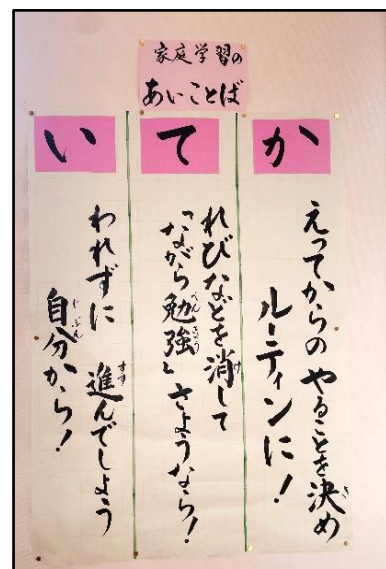 家庭学習の
あいことば
か
えってからの やることを決め
ルーティンに!
て
れびなどを消して
「ながら勉強」さようなら!
い
われずに 進んでしよう
自分から!